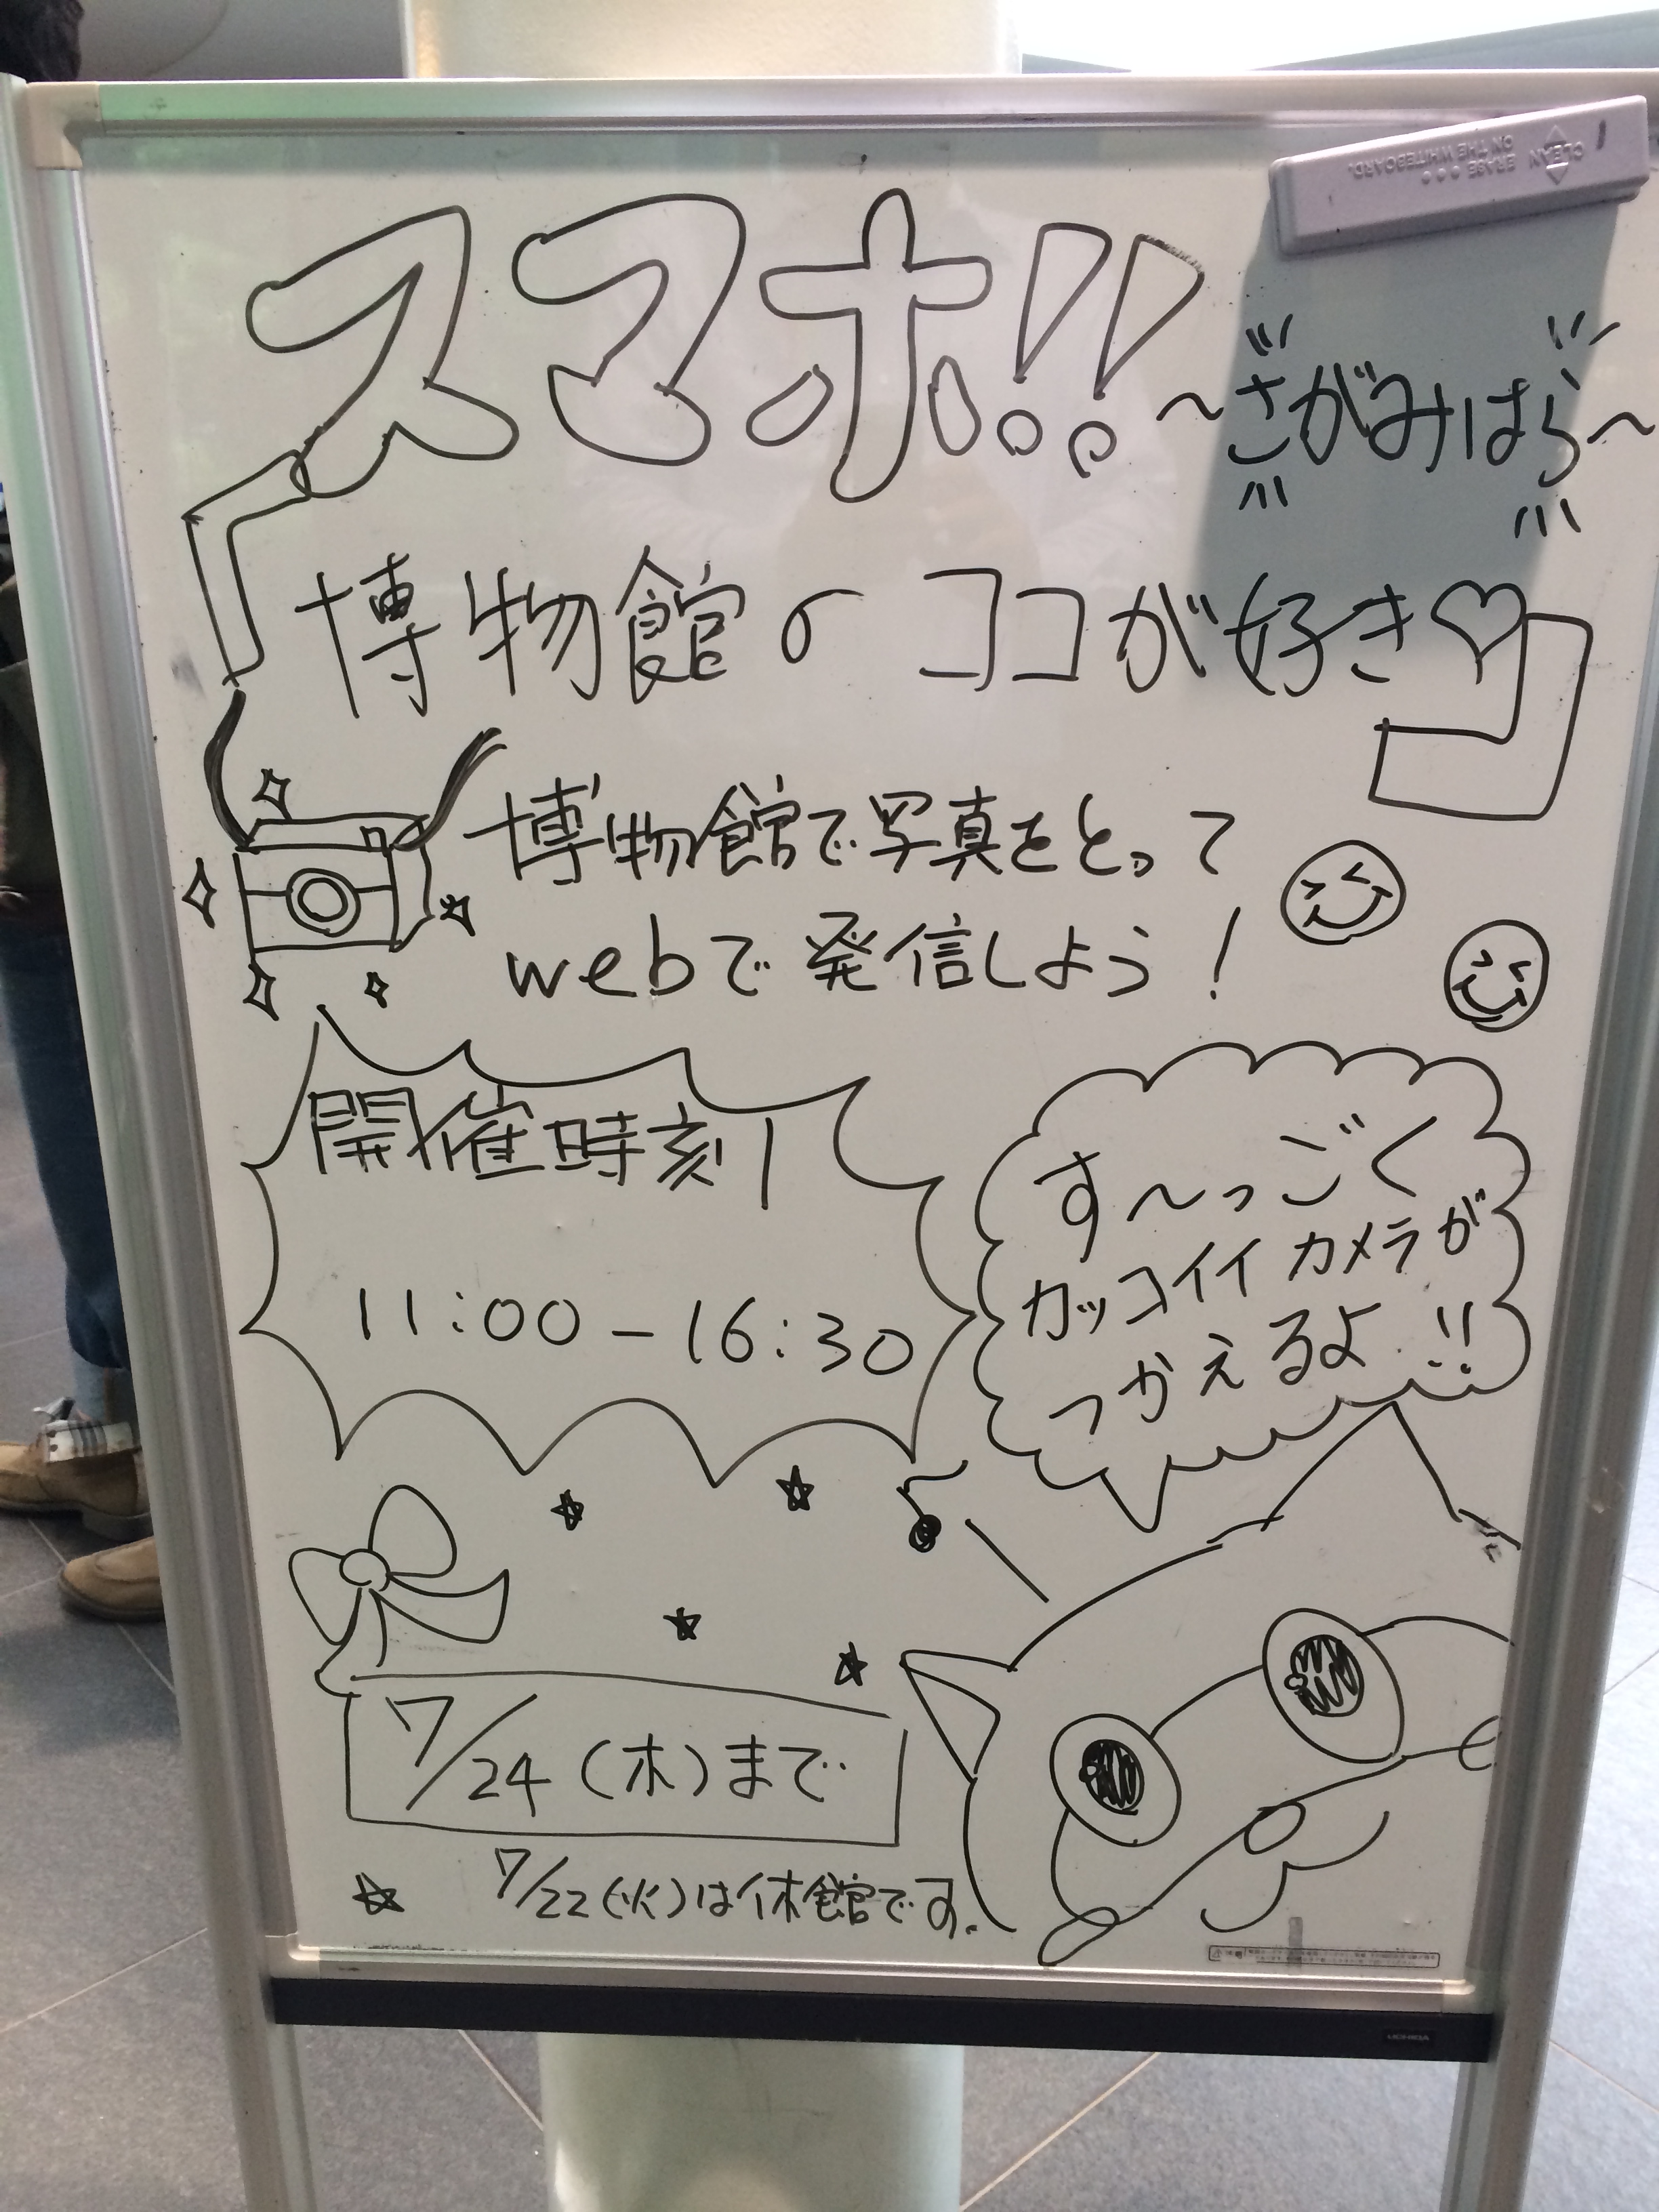 スマホ!!
～さがみはら～
「博物館の ココが好き♡」
博物館で写真をとって
webで発信しよう!
開催時刻
11:00-16:30
す～っごく
カッコイイカメラが
つかえるよ!!
7/24(木)まで
7/22(火)は休館です。
CLEAN ERASE
ON THE WHITEBOARD.
UCHIDA